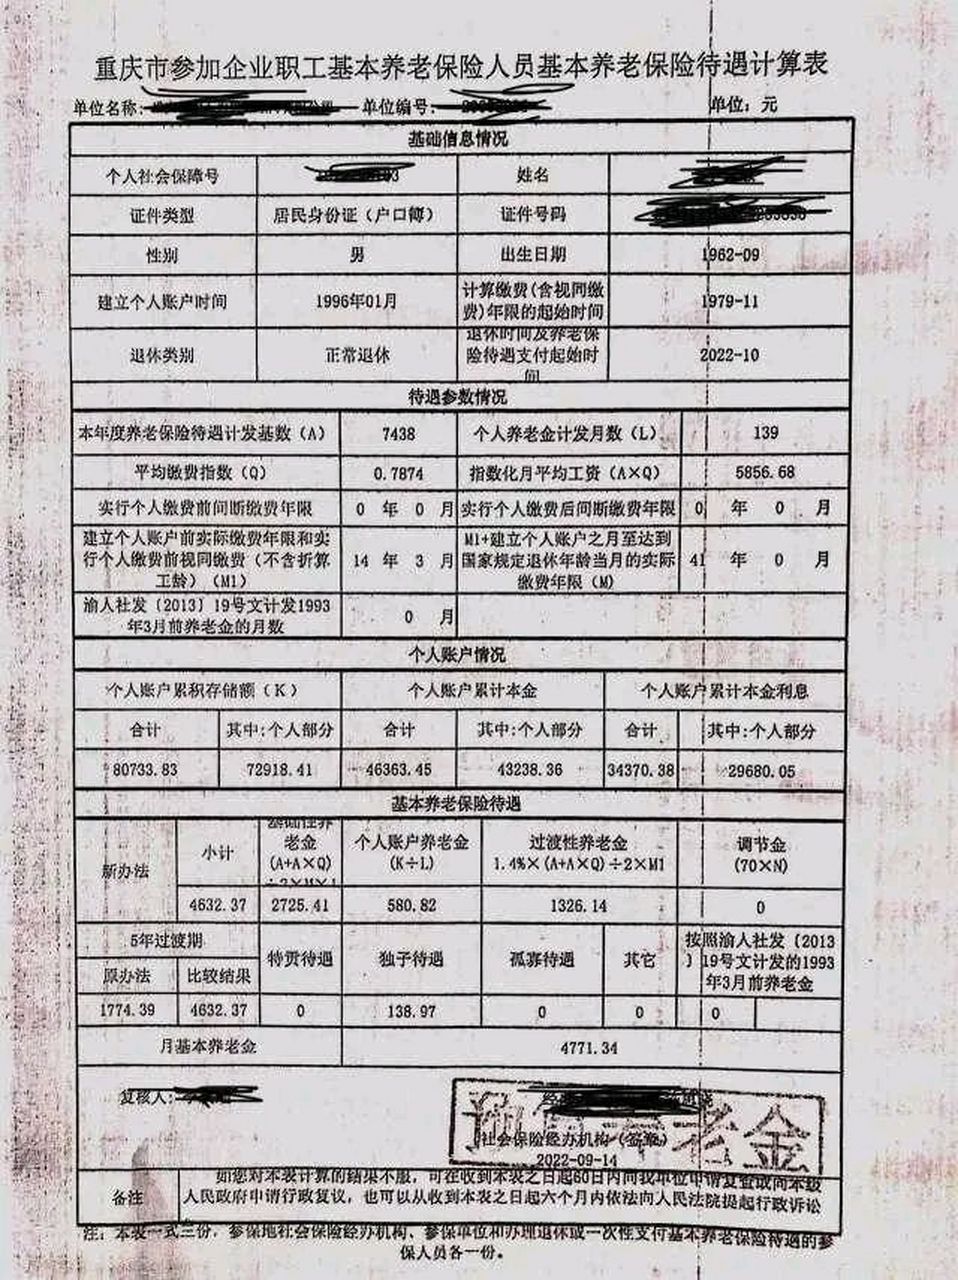 重庆市参加企业职工基本养老保险人员基本养老保险待遇计算表
单位名称: 单位编号: 单位: 元
基础信息情况
个人社会保障号 姓名
证件类型 居民身份证（户口簿） 证件号码
性别 男 出生日期 1962-09
建立个人账户时间 1996年01月 计算缴费(含视同缴费)年限的起始时间 1979-11
退休类别 正常退休 退休时间及养老保险待遇支付起始时间 2022-10
待遇参数情况
本年度养老保险待遇计发基数（A） 7438 个人养老金计发月数（L） 139
平均缴费指数（Q） 0.7874 指数化月平均工资（A×Q） 5856.68
实行个人缴费前间断缴费年限 0 年 0 月 实行个人缴费后间断缴费年限 0 年 0 月
建立个人账户前实际缴费年限和实行个人缴费前视同缴费（不含折算工龄）（M1） 14 年 3 月 M1+建立个人账户之月至达到国家规定退休年龄当月的实际缴费年限（M） 41 年 0 月
渝人社发〔2013〕19号文计发1993年3月前养老金的月数 0 月
个人账户情况
个人账户累积存储额（K） 个人账户累计本金 个人账户累计本金利息
合计 其中:个人部分 合计 其中:个人部分 合计 其中:个人部分
80733.83 72918.41 46363.45 43238.36 34370.38 29680.05
基本养老保险待遇
新办法 小计 基础性养老金(A+A×Q)÷2×M×1 个人账户养老金(K÷L) 过渡性养老金1.4%×(A+A×Q)÷2×M1 调节金(70×N)
4632.37 2725.41 580.82 1326.14 0
5年过渡期 特贡待遇 独子待遇 孤寡待遇 其它 按照渝人社发〔2013〕19号文计发的1993年3月前养老金
原办法 比较结果
1774.39 4632.37 0 138.97 0 0 0
月基本养老金 4771.34
复核人:
养老金
社会保险经办机构（签章）
2022-09-14
备注 如您对本表计算的结果不服，可在收到本表之日起60日内向我单位申请复查或向本级
人民政府申请行政复议，也可以从收到本表之日起六个月内依法向人民法院提起行政诉讼
注：本表一式三份，参保地社会保险经办机构、参保单位和办理退休或一次性支付基本养老保险待遇的参
保人员各一份。